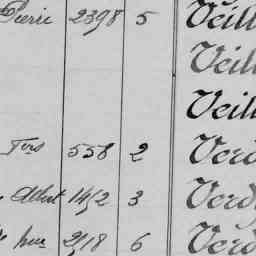 Pierre 2398 5 Veill
Veill
Veill
558 2 Verd
Albert 1452 3 Verd
2118 6 Verd